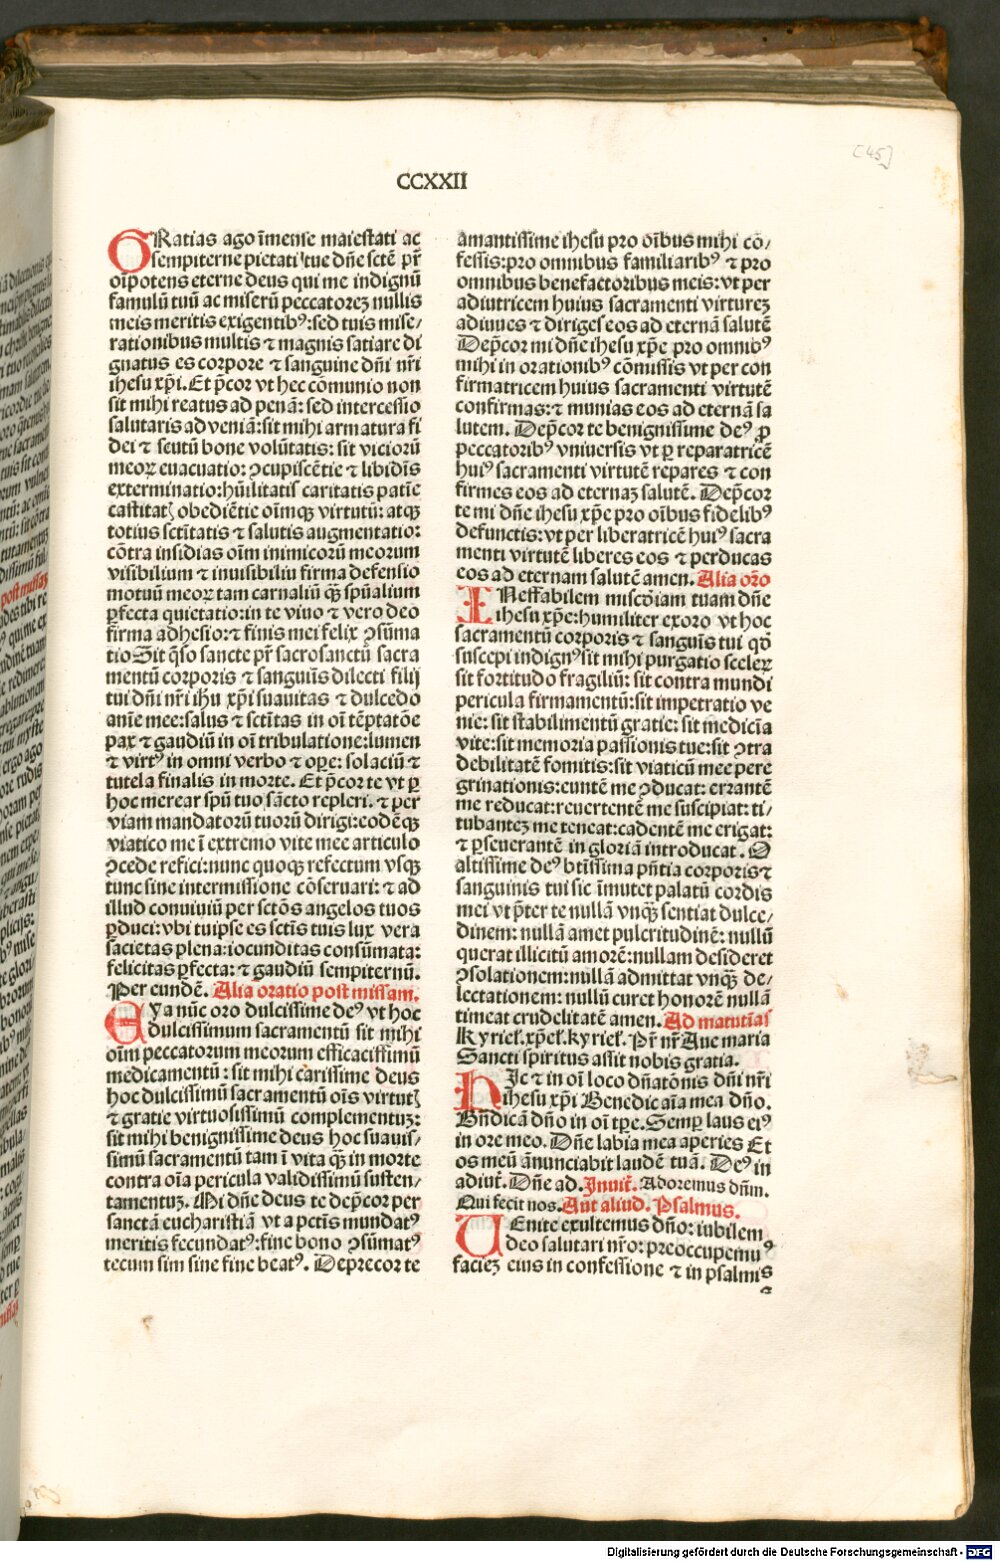 [45]
CCXXII
GRatias ago īmense maiestati ac
sempiterne pietati tue dn̄e sctē pr̄
oīpotens eterne deus qui me indignū
famulū tuū ac miserū peccatorē nullis
meis meritis exigentibꝰ: sed tuis mise/
rationibus multis ⁊ magnis satiare di
gnatus es corpore ⁊ sanguine dn̄i nr̄i
ihesu xp̄i. Et p̄cor vt hec cōmunio non
sit mihi reatus ad penā: sed intercessio
salutaris ad veniā: sit mihi armatura fi
dei ⁊ scutū bone volūtatis: sit vicioꝝ
meoꝝ euacuatio: ↄcupiscētie ⁊ libidīs
exterminatio: hūilitatis caritatis patiē
castitatꝭ obediētie oīmqꝫ virtutū: atqꝫ
totius sctītatis ⁊ salutis augmentatio:
cōtra insidias oīm inimicorū meorum
visibilium ⁊ inuisibiliū firma defensio
motuū meoꝝ tam carnaliū qꝫ̄ spūalium
ꝑfecta quietatio: in te viuo ⁊ vero deo
firma adhesio: ⁊ finis mei felix ↄsūma
tio Sit qͦso sancte pr̄ sacrosanctū sacra
mentū corporis ⁊ sanguīs dilecti filij
tui dn̄i nr̄i ihu xp̄i suauitas ⁊ dulcedo
anīe mee: salus ⁊ sctītas in oī tēptatōe
pax ⁊ gaudiū in oī tribulatione: lumen
⁊ virtꝰ in omni verbo ⁊ ope: solaciū ⁊
tutela finalis in morte. Et p̄cor te vt ꝑ
hoc merear spū tuo sācto repleri. ⁊ per
viam mandatorū tuorū dirigi: eodēqꝫ
viatico me ī extremo vite mee articulo
ↄcede refici: nunc quoqꝫ refectum vsqꝫ
tunc sine intermissione cōseruari: ⁊ ad
illud conuiuiū per sctōs angelos tuos
ꝑduci: vbi tuipse es sctīs tuis lux vera
sacietas plena: iocunditas consūmata:
felicitas ꝑfecta: ⁊ gaudiū sempiternū.
Per eundē. Alia oratio post missam.
EYa nūc oro dulcissime deꝰ vt hoc
dulcissimum sacramentū sit mihi
oīm peccatorum meorum efficacissimū
medicamentū: sit mihi carissime deus
hoc dulcissimū sacramentū oīs virtutꝭ
⁊ gratie virtuosissimū complementuꝫ:
sit mihi benignissime deus hoc suauis/
simū sacramentū tam ī vita qꝫ̄ in morte
contra oīa pericula validissimū susten/
tamentuꝫ. Mi dn̄e deus te dep̄cor per
sanctā eucharistiā vt a petīs mundatꝰ
meritis fecundatꝰ: fine bono ↄsūmatꝰ
tecum sim sine fine beatꝰ. Deprecor te
amantissime ihesu pro oībus mihi cō/
fessis: pro omnibus familiaribꝰ ⁊ pro
omnibus benefactoribus meis: vt per
adiutricem huius sacramenti virtuteꝫ
adiuues ⁊ diriges eos ad eternā salutē
Dep̄cor mi dn̄e ihesu xp̄e pro omnibꝰ
mihi in orationibꝰ cōmissis vt per con
firmatricem huius sacramenti virtutē
confirmas: ⁊ munias eos ad eternā sa
lutem. Dep̄cor te benignissime deꝰ ꝓ
peccatoribꝰ vniuersis vt ꝑ reparatricē
huiꝰ sacramenti virtutē repares ⁊ con
firmes eos ad eternaꝫ salutē. Dep̄cor
te mi dn̄e ihesu xp̄e pro oībus fidelibꝰ
defunctis: vt per liberatricē huiꝰ sacra
menti virtutē liberes eos ⁊ perducas
eos ad eternam salutē amen. Alia orō
INeffabilem miscd̄iam tuam dn̄e
ihesu xp̄e: humiliter exoro vt hoc
sacramentū corporis ⁊ sanguīs tui qd̄
suscepi indignꝰ sit mihi purgatio sceleꝝ
sit fortitudo fragiliū: sit contra mundi
pericula firmamentū: sit impetratio ve
nie: sit stabilimentū gratie: sit medicīa
vite: sit memoria passionis tue: sit ↄtra
debilitatē fomitis: sit viaticū mee pere
grinationis: euntē me ↄducat: errantē
me reducat: reuertentē me suscipiat: ti/
tubanteꝫ me teneat: cadentē me erigat:
⁊ ꝑseuerantē in gloriā introducat. O
altissime deꝰ btīssima pn̄tia corporis ⁊
sanguinis tui sic īmutet palatū cordis
mei vt p̄ter te nullā vnqꝫ̄ sentiat dulce/
dinem: nullā amet pulcritudinē: nullū
querat illicitū amorē: nullam desideret
ↄsolationem: nullā admittat vnqꝫ̄ de/
lectationem: nullū curet honorē nullā
timeat crudelitatē amen. Ad matutīas
Kyriel̄. xp̄el̄. kyriel̄. Pr̄ nr̄ Aue maria
Sancti spiritus assit nobis gratia.
HIc ⁊ in oī loco dn̄atōnis dn̄i nr̄i
ihesu xp̄i Benedic aīa mea dn̄o.
Bn̄dicā dn̄o in oī tp̄e. Semꝑ laus eiꝰ
in ore meo. Dn̄e labia mea aperies Et
os meū ānunciabit laudē tuā. Deꝰ in
adiut̄. Dn̄e ad. Inuit̄. Adoremus dn̄m.
Qui fecit nos. Ant̄ aliud. Psalmus.
UEnite exultemus dn̄o: iubilem
deo salutari nr̄o: preoccupemuꝰ
facieꝫ eius in confessione ⁊ in psalmis
Digitalisierung gefördert durch die Deutsche Forschungsgemeinschaft - DFG